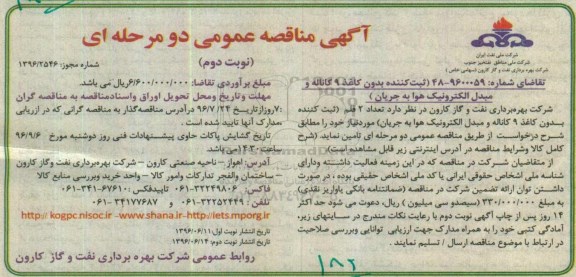 آگهی مناقصه عمومی دو مرحله ای
(نوبت دوم)
شماره مجوز: ۱۳۹۶/۲۵۴۶
شرکت ملی نفت ایران
شرکت ملی مناطق نفتخیز جنوب
شرکت بهره برداری نفت و گاز کارون (سهامی خاص)
تقاضای شماره: ۹۶۰۰۰۵۹-۴۸ (ثبت‌کننده بدون کاغذ ۹ کاناله و
مبدل الکترونیک هوا به جریان)
شرکت بهره‌برداری نفت و گاز کارون در نظر دارد تعداد ۲ قلم (ثبت کننده
بدون کاغذ ۹ کاناله و مبدل الکترونیک هوا به جریان) موردنیاز خود را مطابق
شرح درخواست از طریق مناقصه عمومی دو مرحله‌ای تامین نماید. (شرح
کامل کالا وشرایط مناقصه در آدرس اینترنتی زیر قابل مشاهده است)
از متقاضیان شرکت در مناقصه که در این زمینه فعالیت داشته ودارای
شناسه ملی اشخاص حقوقی ایرانی یا کد ملی اشخاص حقیقی بوده ، در صورت
داشتن توان ارائه تضمین شرکت در مناقصه (ضمانتنامه بانکی یاواریز نقدی)
به مبلغ ۳۳۰/۰۰۰/۰۰۰ (سیصدو سی میلیون) ریال، دعوت می شود حد اکثر
۱۴ روز پس از چاپ آگهی نوبت دوم با رعایت نکات مندرج در سایتهای زیر،
آمادگی کتبی خود را به همراه مدارک جهت ارزیابی توانایی وبررسی صلاحیت
در ارتباط با موضوع مناقصه ارسال / تسلیم نمایند .
مبلغ برآوردی تقاضا: ۶/۶۰۰/۰۰۰/۰۰۰ریال می باشد.
مهلت وتاریخ ومحل تحویل اوراق واسنادمناقصه به مناقصه گران
:۷روزازتاریخ ۹۶/۷/۲۲ درآدرس مناقصه‌گذار به مناقصه گرانی که در ارزیابی
مدارک آنها تایید شده است .
تاریخ گشایش پاکات حاوی پیشنهادات فنی روز دوشنبه مورخ ۹۶/۹/۶
ساعت۱۴:۳۰می باشد.
آدرس: اهواز – ناحیه صنعتی کارون – شرکت بهره‌برداری نفت وگاز کارون
– ساختمان والفجر تدارکات وامور کالا – واحد خرید وبررسی منابع کالا
فاکس ۳۲۲۴۹۸۰۶-۰۶۱ تاییدفکس : ۳۴۱-۶۷۶۱۰-۰۶۱
تلفن : ۳۲۲۵۲۴۴۹-۰۶۱ و ۳۴۱۷۷۶۸۷-۰۶۱
http:// kogpc.nisoc.ir -www.shana.ir-http://iets.mporg.ir
تاریخ انتشار نوبت اول:۱۳۹۶/۰۶/۱۱
تاریخ انتشار نوبت دوم: ۱۳۹۶/۰۶/۱۴
روابط عمومی شرکت بهره برداری نفت و گاز کارون
۱۸۲